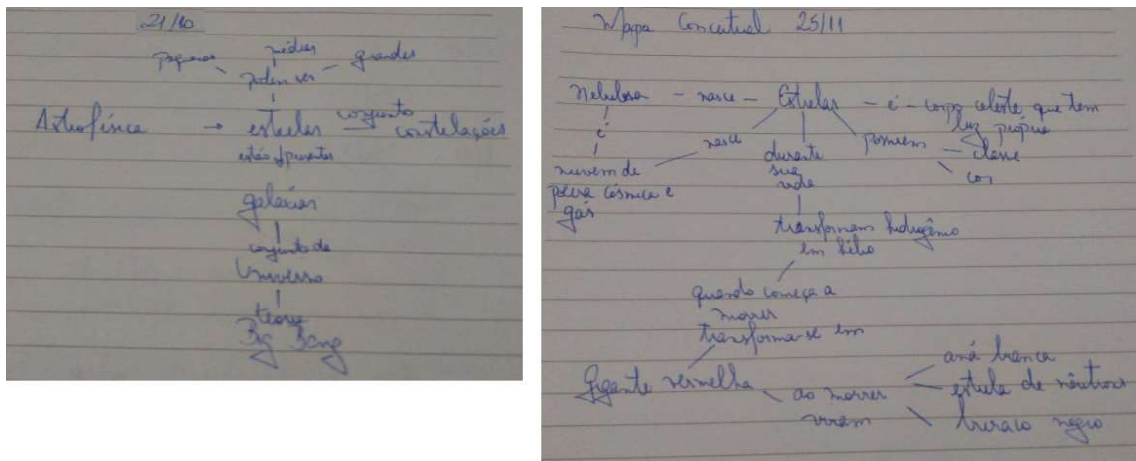 21/10
pequenas médias grandes
podem ser
Astrofísica → estrelas conjunto constelações
estão presentes
galáxias
conjunto de
Universo
teoria
Big Bang
Mapa Conceitual 25/11
Nebulosa - nasce - Estrelas - é - corpo celeste que tem
luz própria
é nasce durante possuem - classe
nuvem de sua cor
poeira cósmica e vida
gás
transformam hidrogênio
em hélio
quando começa a
morrer
transforma-se em
Gigante vermelha ao morrer
viram
anã branca
estrela de nêutrons
buraco negro